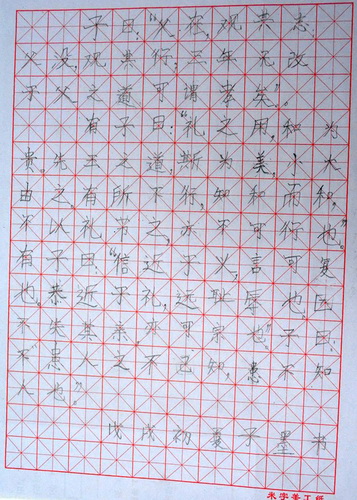 子曰：“父在，观其志；
父没，观其行；三年无改
于父之道，可谓孝矣。”
有子曰：“礼之用，和为
贵。先王之道，斯为美，小大
由之。有所不行，知和而和，
不以礼节之，亦不可行也。”
有子曰：“信近于义，言可复
也。恭近于礼，远耻辱也。因
不失其亲，亦可宗也。”子曰：
“不患人之不己知，患不知
人也。”
戊戌初夏子墨书
米字美工纸